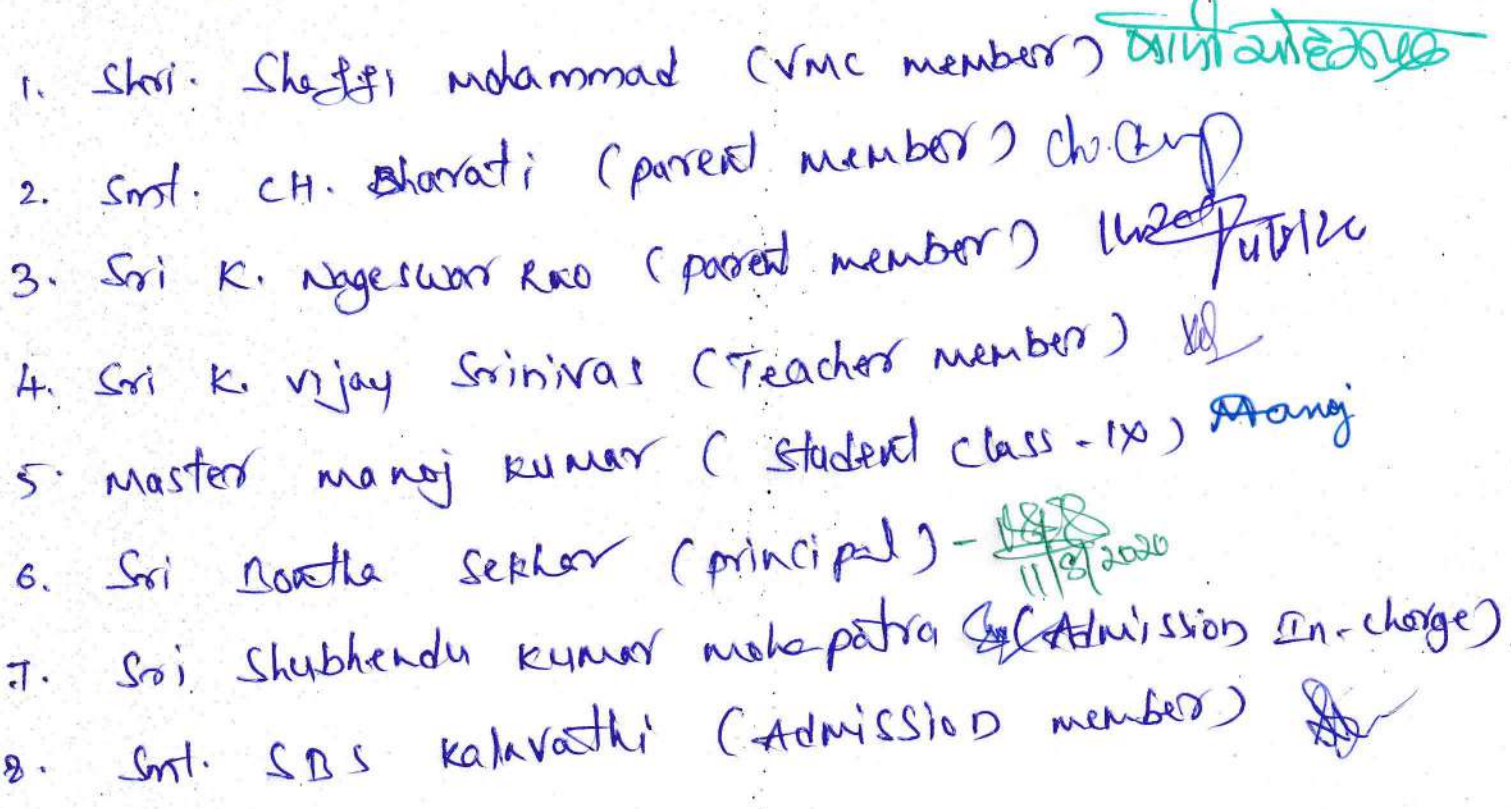 1. Shri. Sheffi Mohammad (VMC member)
2. Smt. CH. Bharati (parent member) Ch.
3. Sri K. Nageswar Rao (parent member)
4. Sri K. Vijay Srinivas (Teacher member)
5. Master Manoj Kumar (Student class - IX) Manoj
6. Sri Bontha Sekhar (principal) - 11/8/2020
7. Sri Shubhendu Kumar Mohapatra (Admission In-charge)
8. Smt. SBS Kalavathi (Admission member)